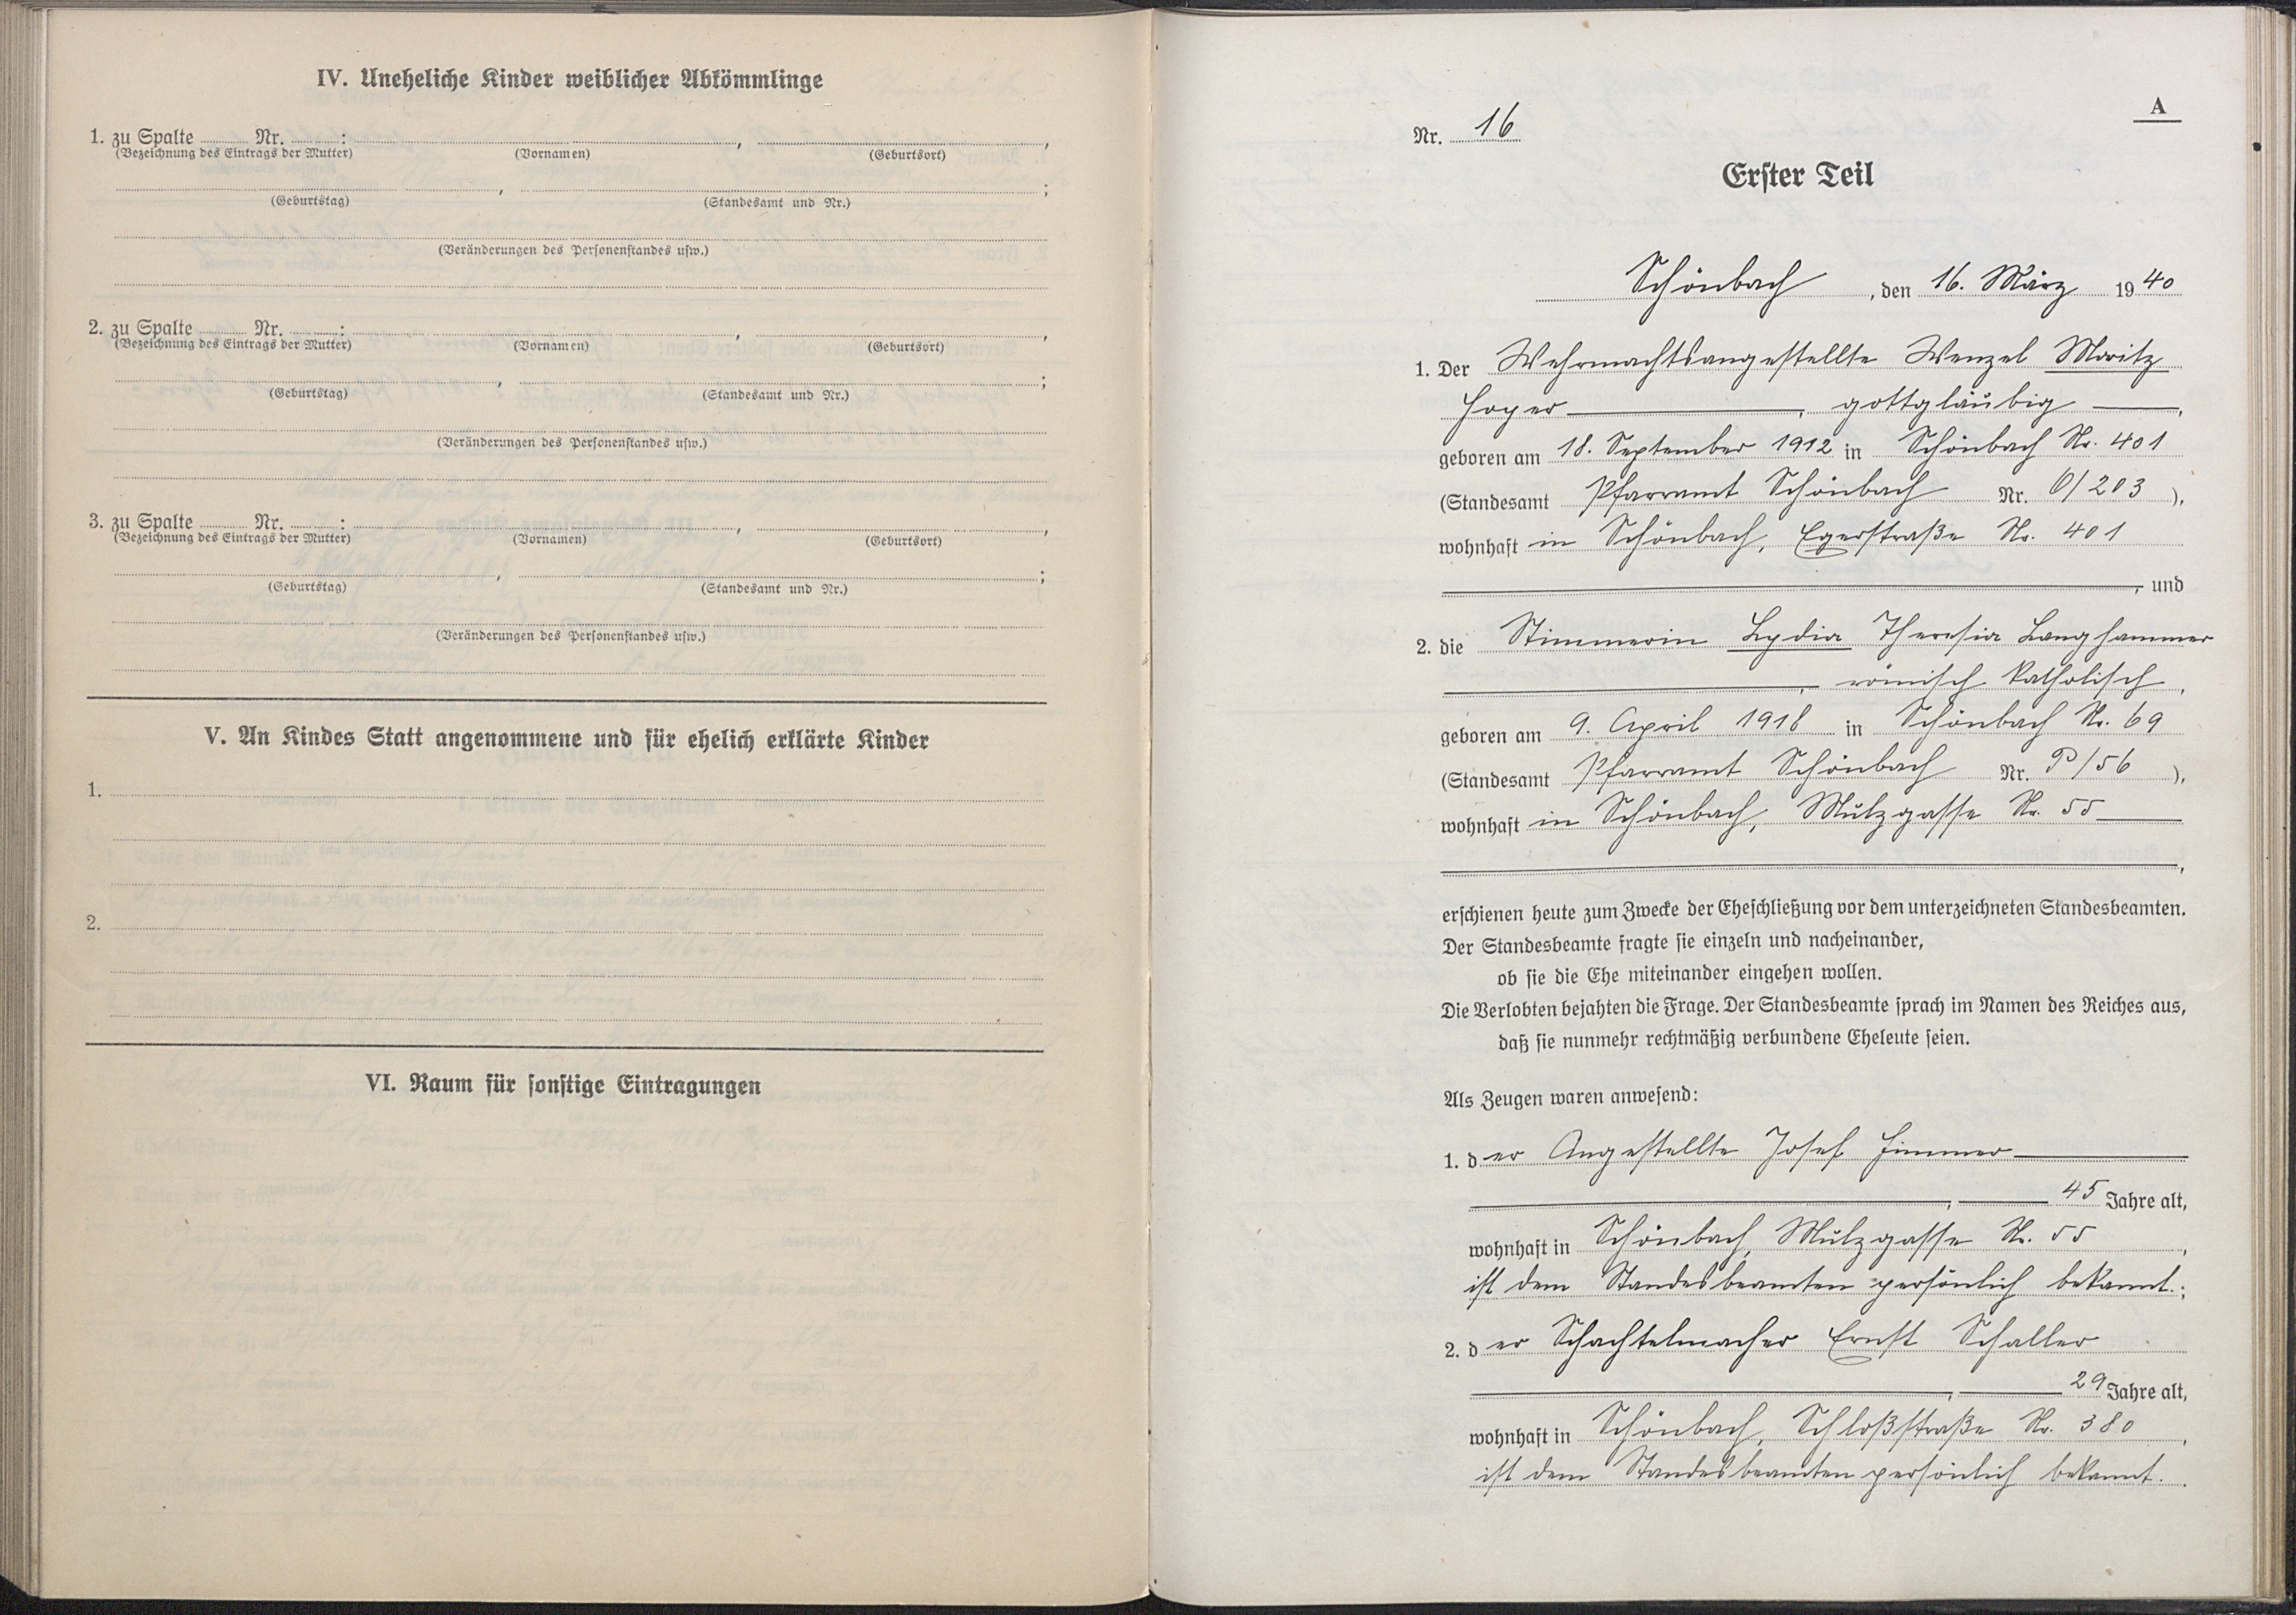 IV. Uneheliche Kinder weiblicher Abkömmlinge
1. zu Spalte Nr. : , ,
(Bezeichnung des Eintrags der Mutter) (Vornamen) (Geburtsort)
, ;
(Geburtstag) (Standesamt und Nr.)
(Veränderungen des Personenstandes usw.)
2. zu Spalte Nr. : , ,
(Bezeichnung des Eintrags der Mutter) (Vornamen) (Geburtsort)
, ;
(Geburtstag) (Standesamt und Nr.)
(Veränderungen des Personenstandes usw.)
3. zu Spalte Nr. : , ,
(Bezeichnung des Eintrags der Mutter) (Vornamen) (Geburtsort)
, ;
(Geburtstag) (Standesamt und Nr.)
(Veränderungen des Personenstandes usw.)
V. An Kindes Statt angenommene und für ehelich erklärte Kinder
1.
2.
VI. Raum für sonstige Eintragungen
A
Nr. 16
Erster Teil
Schönbach, den 16. März 1940
1. Der Wehrmachtsangestellte Wenzel Moritz
Hoyer, gottgläubig,
geboren am 18. September 1912 in Schönbach Nr. 401
(Standesamt Pfarramt Schönbach Nr. O/203),
wohnhaft in Schönbach, Egerstraße Nr. 401
, und
2. die Stimmerin Lydia Theresia Langhammer
, römisch katholisch,
geboren am 9. April 1918 in Schönbach Nr. 69
(Standesamt Pfarramt Schönbach Nr. P/56),
wohnhaft in Schönbach, Mülzgasse Nr. 55
,
erschienen heute zum Zwecke der Eheschließung vor dem unterzeichneten Standesbeamten.
Der Standesbeamte fragte sie einzeln und nacheinander,
ob sie die Ehe miteinander eingehen wollen.
Die Verlobten bejahten die Frage. Der Standesbeamte sprach im Namen des Reiches aus,
daß sie nunmehr rechtmäßig verbundene Eheleute seien.
Als Zeugen waren anwesend:
1. der Angestellte Josef Himmer
, 45 Jahre alt,
wohnhaft in Schönbach, Mülzgasse Nr. 55,
ist dem Standesbeamten persönlich bekannt.;
2. der Schachtelmacher Ernst Schaller
, 29 Jahre alt,
wohnhaft in Schönbach, Schloßstraße Nr. 380,
ist dem Standesbeamten persönlich bekannt..